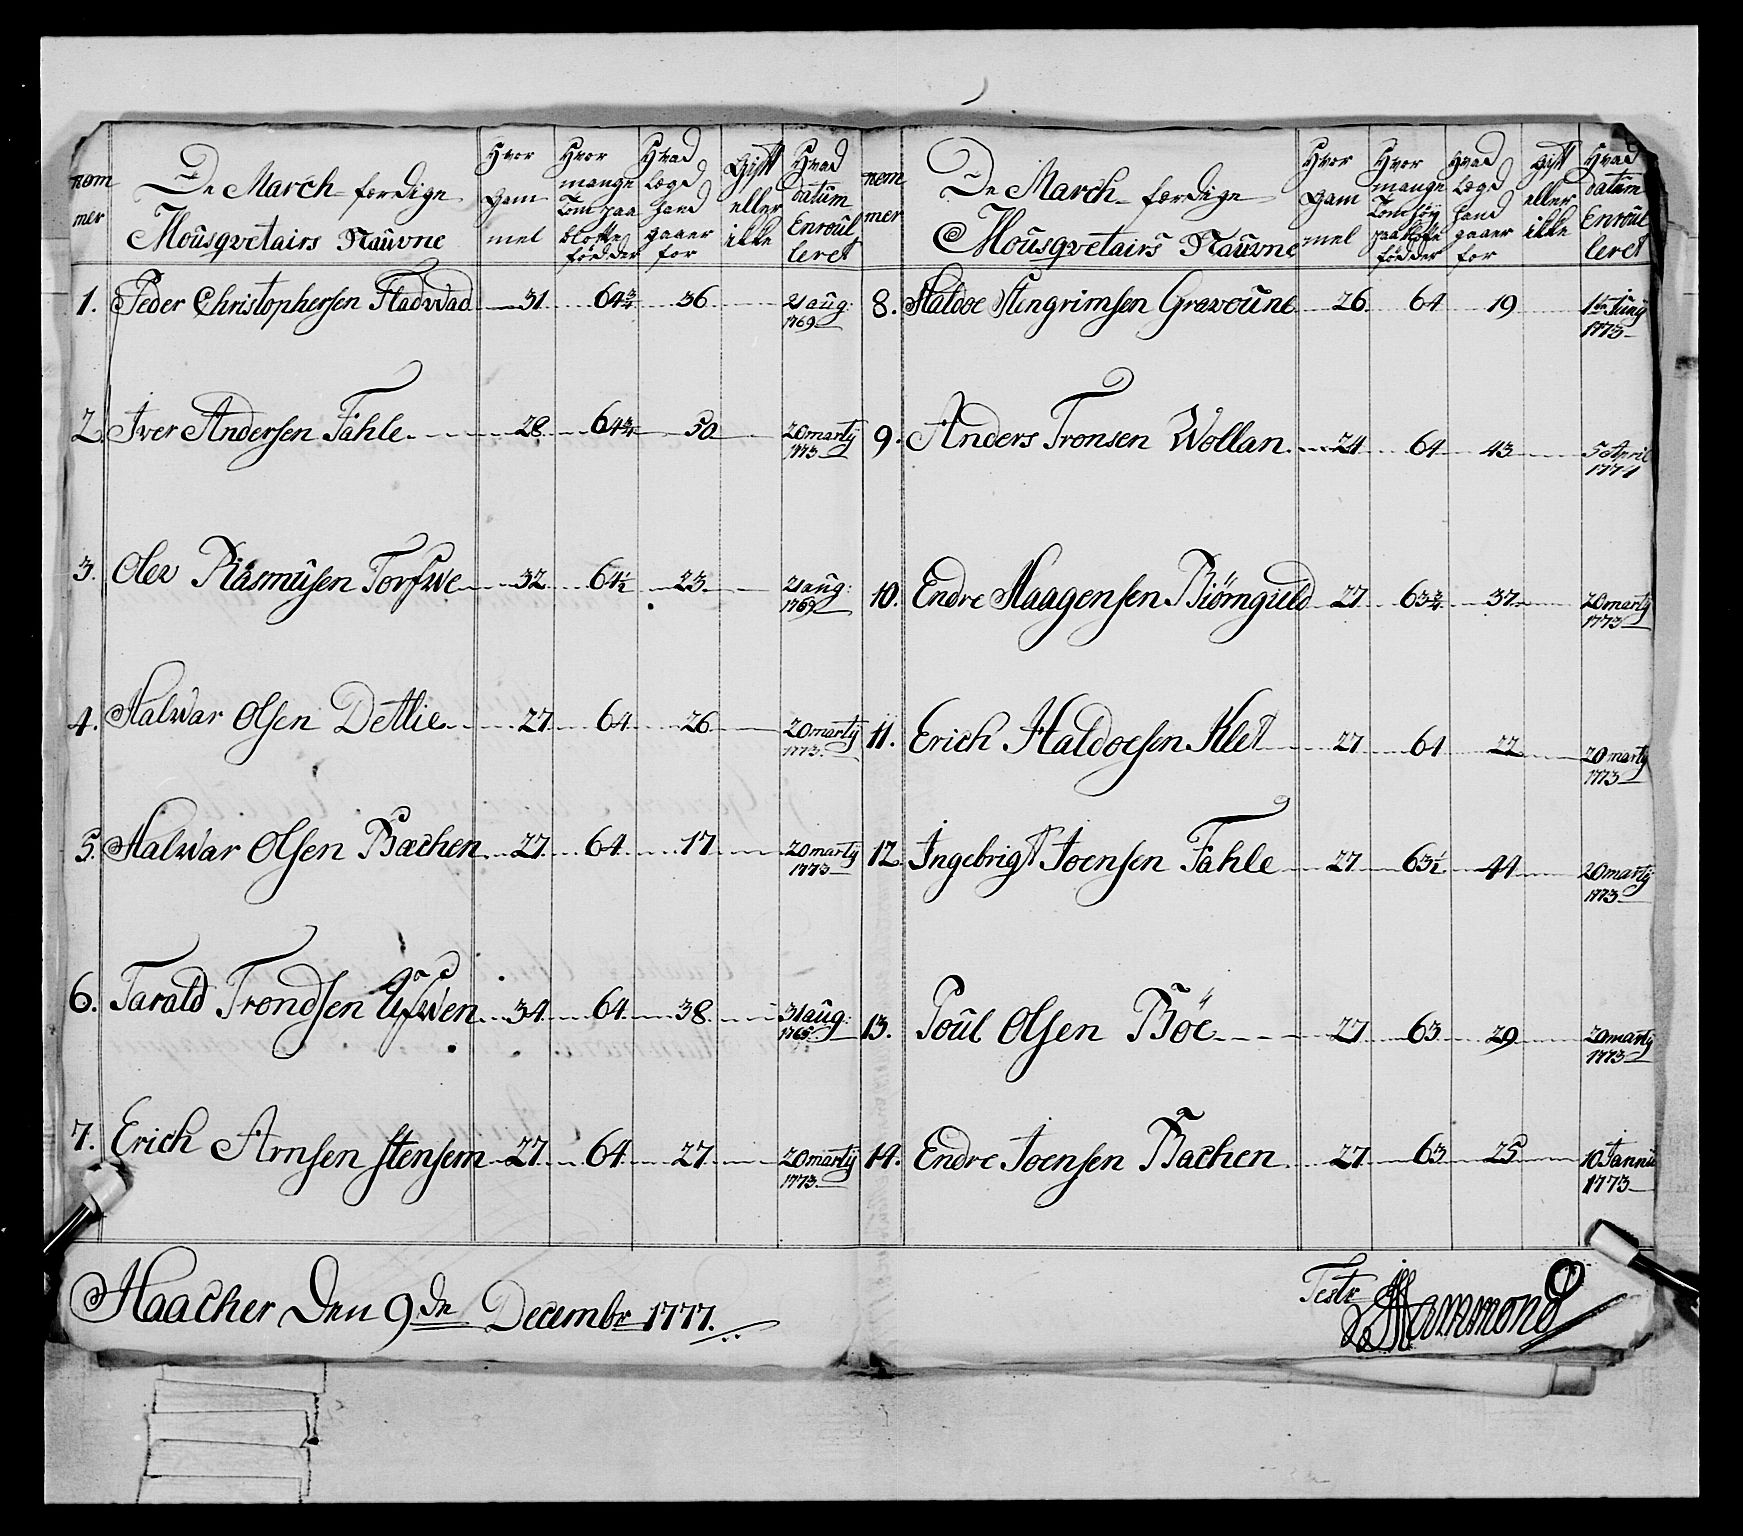 nom mer | De March færdige Mousqvetairs Nauvne | Hvor gam mel | Hvor mange Tom paa blotte födder | Hvad Lægd hand gaaer for | Gift eller ikke | Hvad datum Enroul leret
1. Peder Christophersen Fladvad 31 64¾ 36 21 aug: 1769
2. Iver Andersen Fahle 28 64¾ 50 20 marty 1773
3. Olev Rasmusen Torfwe 32 64½ 23 21 aug: 1769
4. Halvar Olsen Detlie 27 64 26 20 marty 1773.
5. Halvar Olsen Bæchen 27 64 17 20 marty 1773
6. Tarald Trondsen 34 64 38 31 aug:
7. Erich Arnsen Stensem 27 64 27 20 marty 1773.
nom mer | De March færdige Mousqvetairs Nauvne | Hvor gam mel | Hvor mange Tom höy paa blotte födder | Hvad Lægd hand gaaer for | Gift eller ikke | Hvad datum Enroul leret
8. Haldoe Stengrimsen Gravoune 26 64 19 Juny 1773
9. Anders Tronsen Wollan 24 64 43 5 April 1774
10. Endre Haagensen Biörnguld 27 63¾ 37 20 marty 1773
11. Erich Haldoesen Klet 27 64 22 20 marty 1773
12. Ingebrigt Joensen Fahle 27 63½ 44 20 marty 1773
13. Poul Olsen Böe 27 63 29 20 marty 1773
14. Endre Joensen Bachen 27 63 25 10 Januu 1773
Haacher Den 9de Decembr 1777.
Teste
Hammond